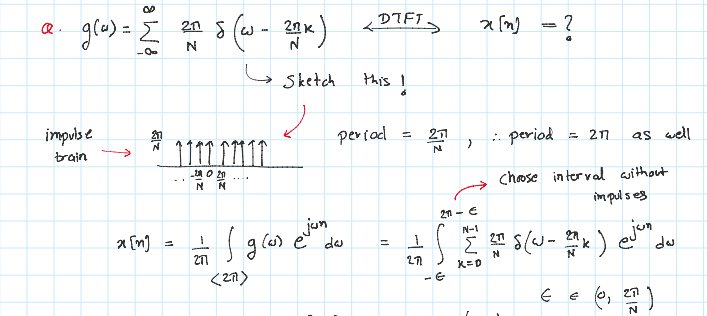 Q. g(ω) = ∞ Σ -∞ 2π/N δ(ω - 2πk/N) ⟷ DTFT x[n] = ?
Sketch this!
impulse train → 2π/N period = 2π/N , ∴ period = 2π as well
.. -2π/N 0 2π/N ....
choose interval without impulses
x[n] = 1/2π ∫<2π> g(ω) e^jωn dω = 1/2π ∫ -ε 2π-ε N-1 Σ k=0 2π/N δ(ω - 2π/N k) e^jωn dω
ε ∈ (0, 2π/N)